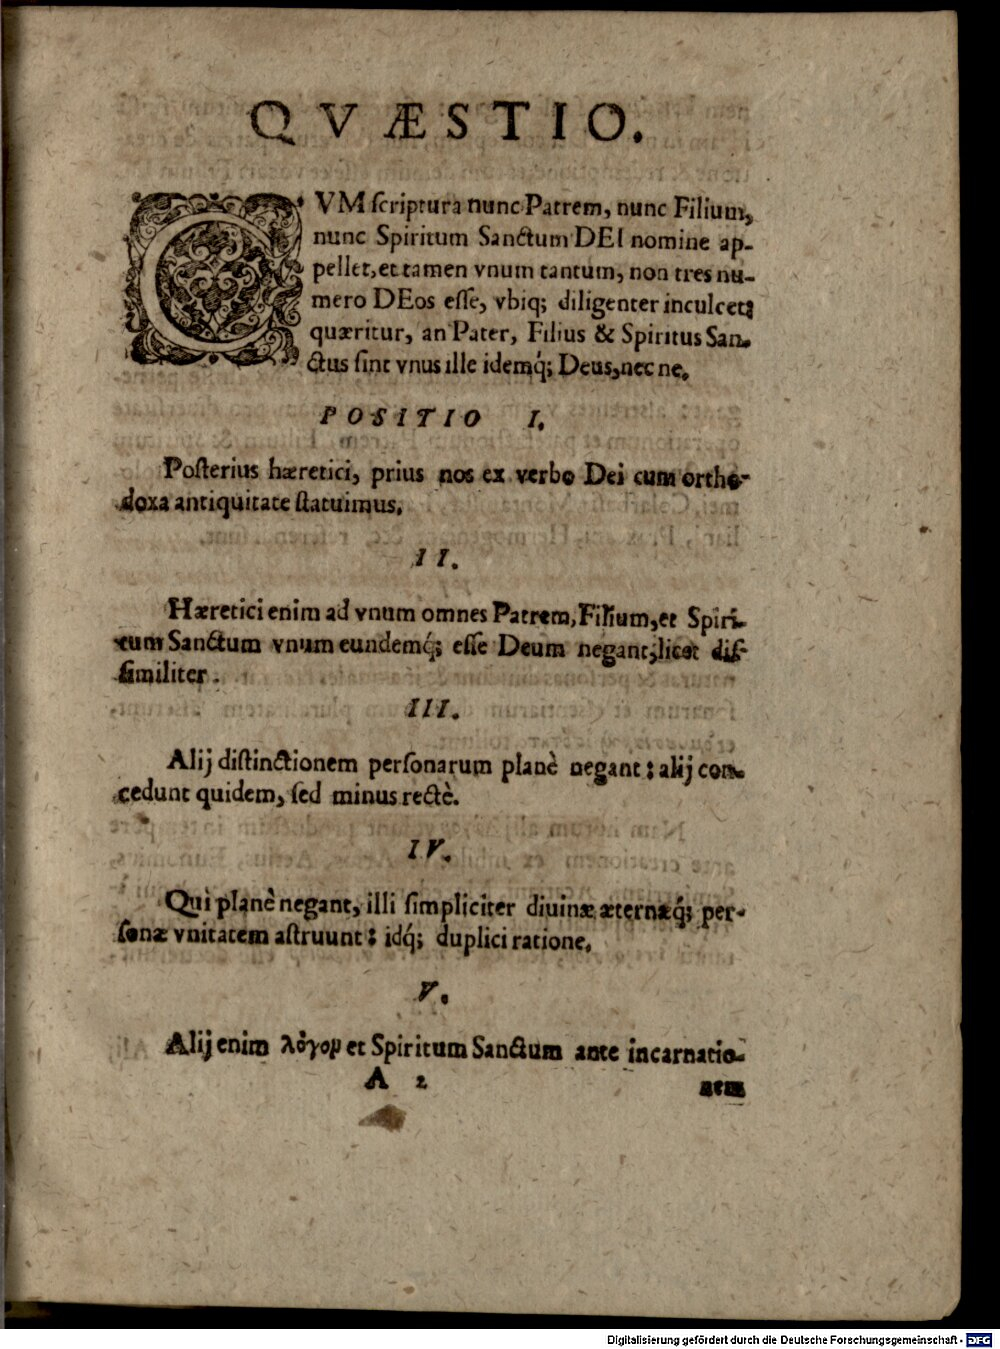 QVÆSTIO.
CVM scriptura nunc Patrem, nunc Filium,
nunc Spiritum Sanctum DEI nomine ap-
pellet, et tamen vnum tantum, non tres nu-
mero DEos esse, vbiq; diligenter inculcet;
quæritur, an Pater, Filius & Spiritus San-
ctus sint vnus ille idemq́; Deus, nec ne.
POSITIO I.
Posterius hæretici, prius nos ex verbo Dei cum ortho-
doxa antiquitate statuimus.
II.
Hæretici enim ad vnum omnes Patrem, Filium, et Spiri-
tum Sanctum vnum eundemq́; esse Deum negant, licet dis-
similiter.
III.
Alij distinctionem personarum planè negant: alij con-
cedunt quidem, sed minus rectè.
IV.
Qui planè negant, illi simpliciter diuinæ æternæq́; per-
sonæ vnitatem astruunt: idq́; duplici ratione.
V.
Alij enim λόγον et Spiritum Sanctum ante incarnatio-
A 2
nem
Digitalisierung gefördert durch die Deutsche Forschungsgemeinschaft - DFG